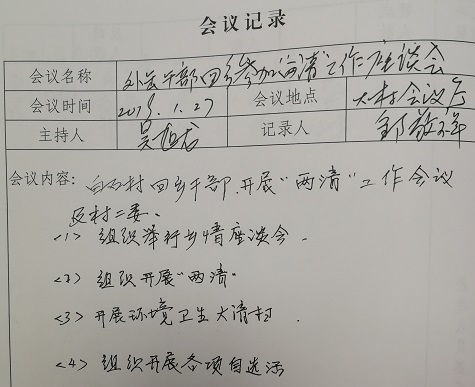 会议记录
会议名称 外出干部回乡参加"两清"工作座谈会
会议时间 2018.1.27 会议地点 大村会议厅
主持人 吴 记录人
会议内容: 白石村回乡干部、开展"两清"工作会议
及村二委、
<1> 组织举行乡情座谈会.
<2> 组织开展"两清".
<3> 开展环境卫生大清扫.
<4> 组织开展各项自选活